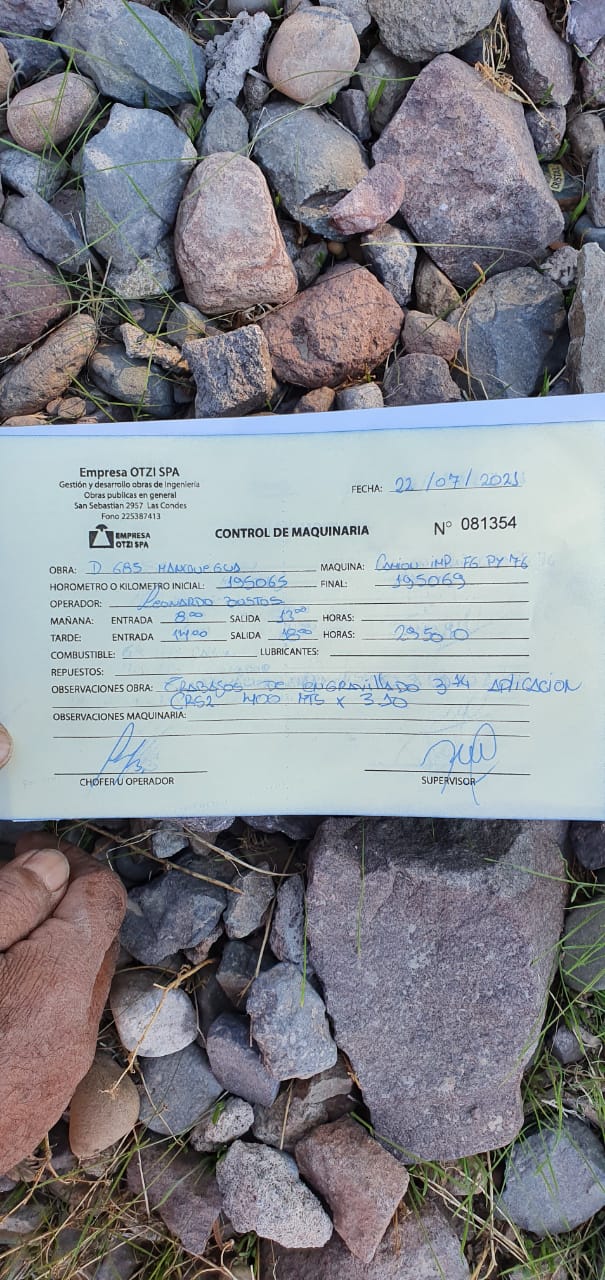 Empresa OTZI SPA
Gestión y desarrollo obras de Ingenieria
Obras publicas en general
San Sebastian 2957 Las Condes
Fono 225387413
EMPRESA
OTZI SPA
FECHA: 22/07/2021
CONTROL DE MAQUINARIA
N° 081354
OBRA: D 685 MANQUEGUA MAQUINA: CAMION IMP FG PY 76
HOROMETRO O KILOMETRO INICIAL: 195065 FINAL: 195069
OPERADOR: LEONARDO BUSTOS
MAÑANA: ENTRADA 8:00 SALIDA 13:00 HORAS:
TARDE: ENTRADA 14:00 SALIDA 18:00 HORAS:
COMBUSTIBLE: LUBRICANTES:
REPUESTOS:
OBSERVACIONES OBRA: TRABAJOS DE ENGRAVILLADO 3/4 APLICACION
CRS2 400 MTS X 3.10
OBSERVACIONES MAQUINARIA:
CHOFER U OPERADOR
SUPERVISOR